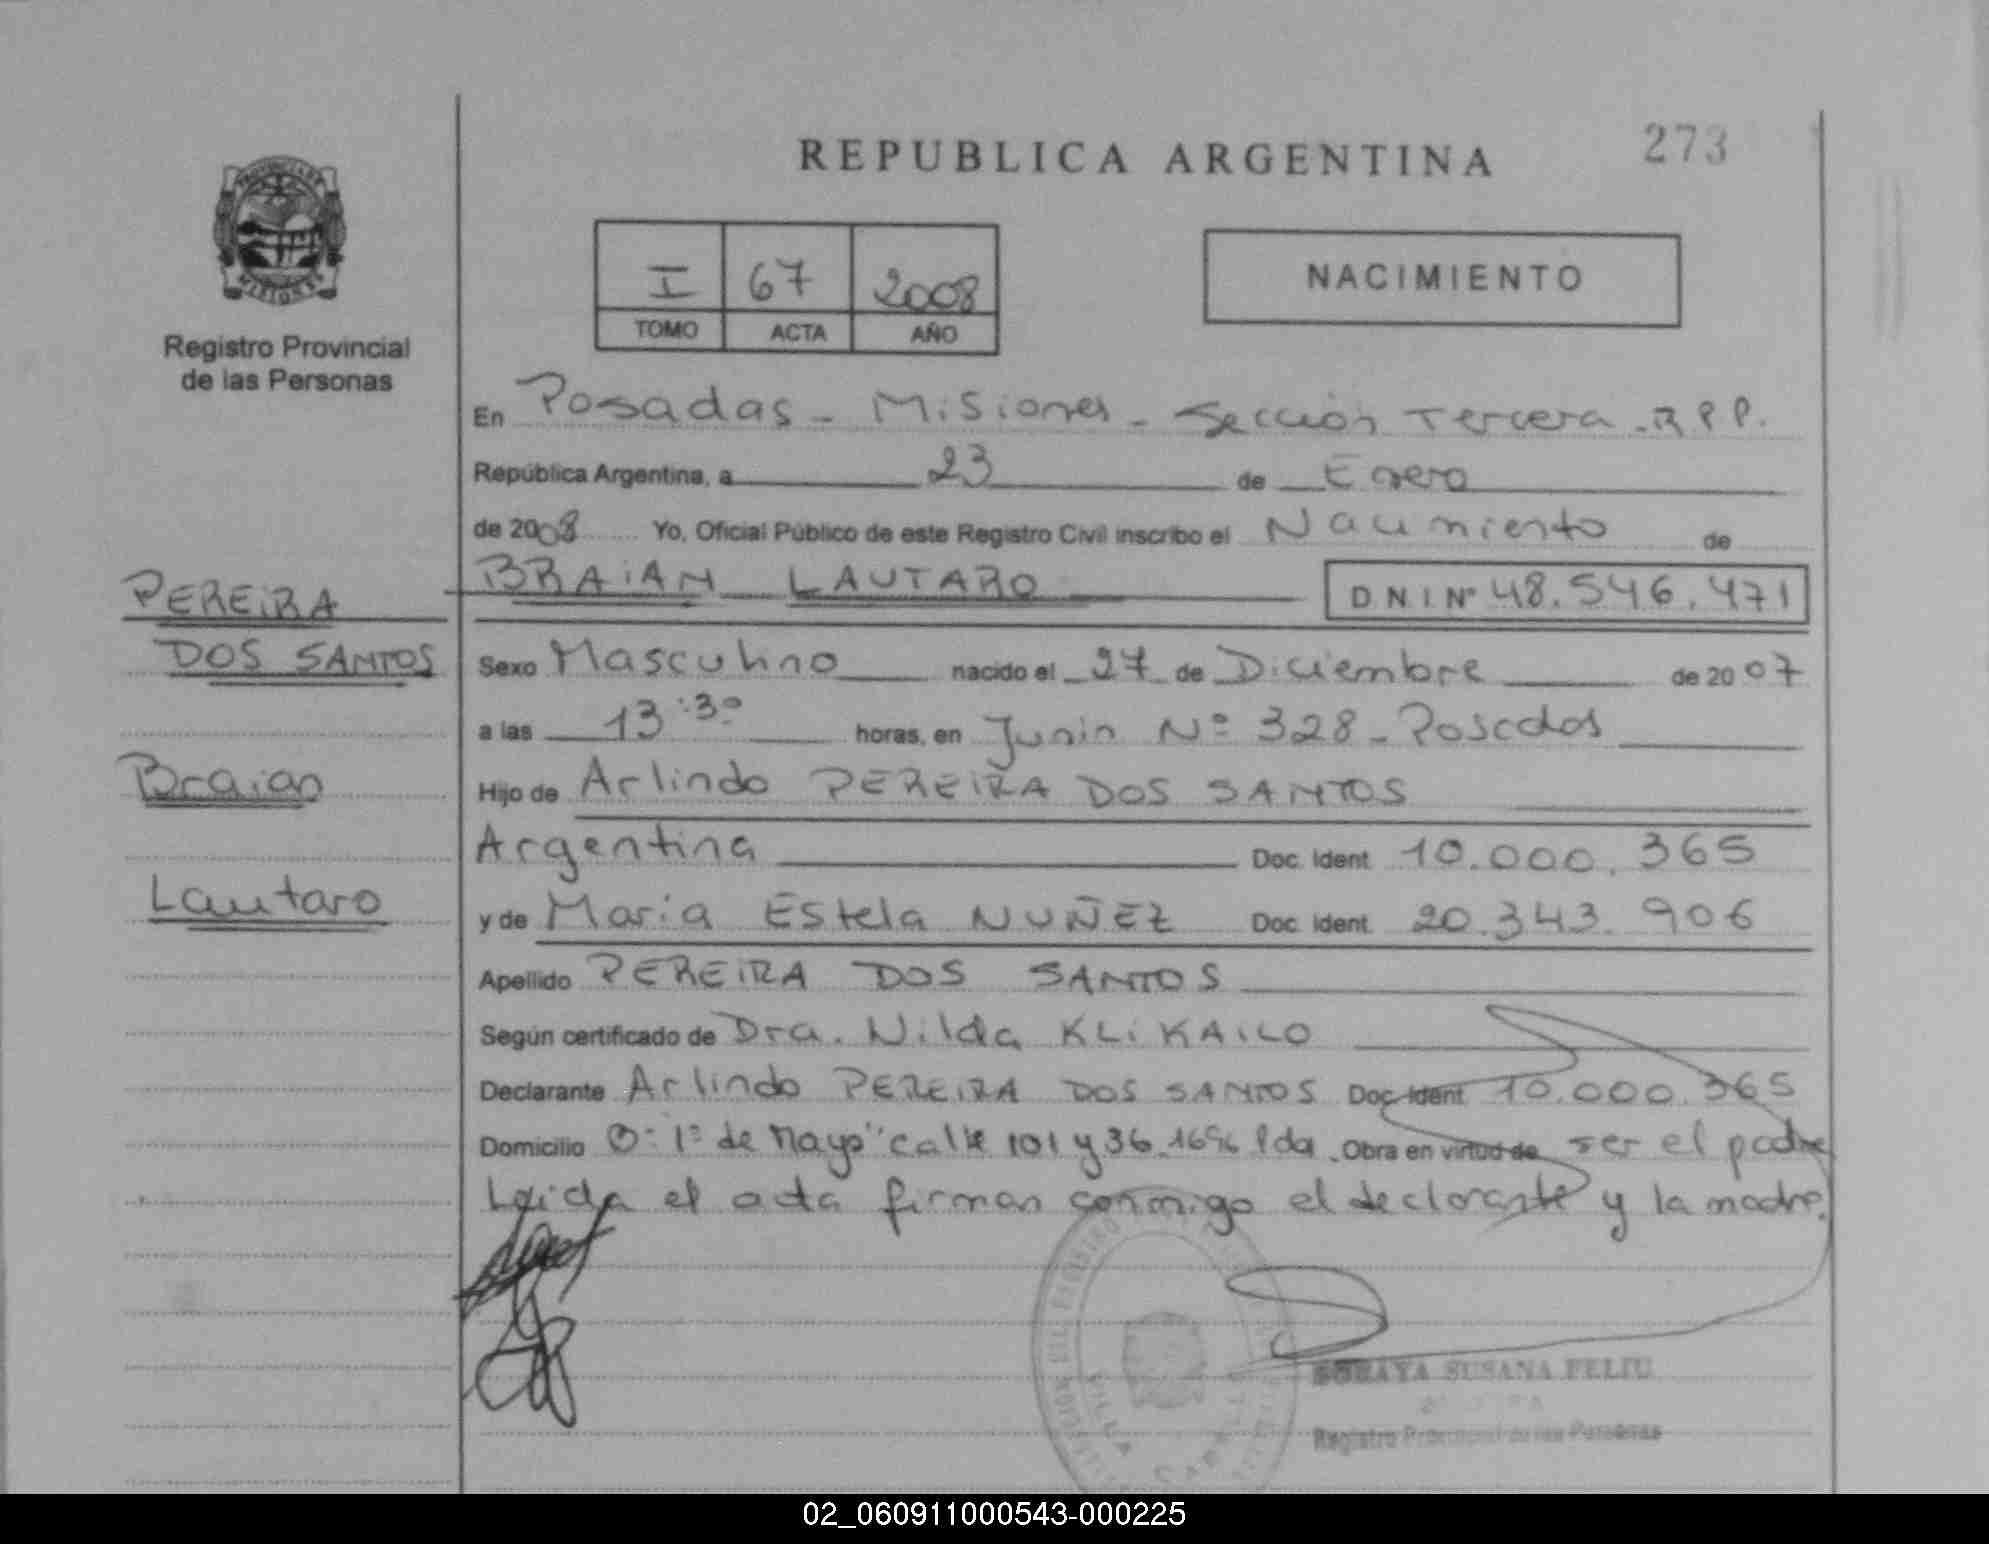 REPUBLICA ARGENTINA
273
PROVINCIA DE
MISIONES
Registro Provincial
de las Personas
I 67 2008
TOMO ACTA AÑO
NACIMIENTO
En Posadas - Misiones - Sección Tercera - R P P.
República Argentina, a 23 de Enero
de 2008 Yo, Oficial Público de este Registro Civil inscribo el Nacimiento de
BRAIAN LAUTARO D.N.I.Nº 48.546.471
PEREIRA
DOS SANTOS
Braian
Lautaro
Sexo Masculino nacido el 27 de Diciembre de 2007
a las 13:30 horas, en Junin Nº 328 - Posadas
Hijo de Arlindo PEREIRA DOS SANTOS
Argentina Doc. Ident. 10.000.365
y de Maria Estela NUÑEZ Doc. Ident. 20.343.906
Apellido PEREIRA DOS SANTOS
Según certificado de Dra. Nilda KLIKAILO
Declarante Arlindo PEREIRA DOS SANTOS Doc. Ident. 10.000.365
Domicilio 1º de Mayo" calle 101 y 36. Pda. Obra en virtud de ser el padre
Leida el acta firman conmigo el declarante y la madre.
SORAYA SUSANA FELIU
Registro Provincial de las Personas
VILLA CABELLO
02_060911000543-000225